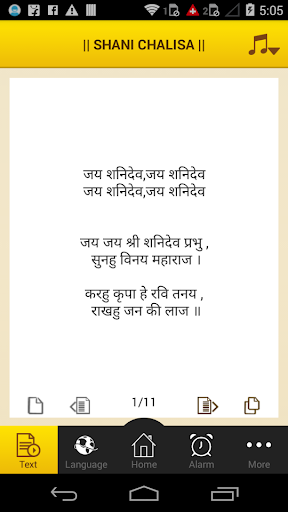 5:05
|| SHANI CHALISA ||
जय शनिदेव,जय शनिदेव
जय शनिदेव,जय शनिदेव
जय जय श्री शनिदेव प्रभु ,
सुनहु विनय महाराज ।
करहु कृपा हे रवि तनय ,
राखहु जन की लाज ॥
1/11
Text Language Home Alarm More